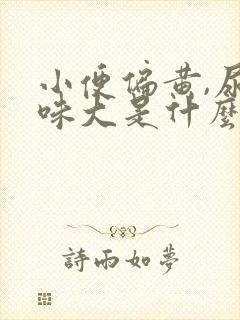 小便偏黄,尿
味大是什麼
詩雨如夢